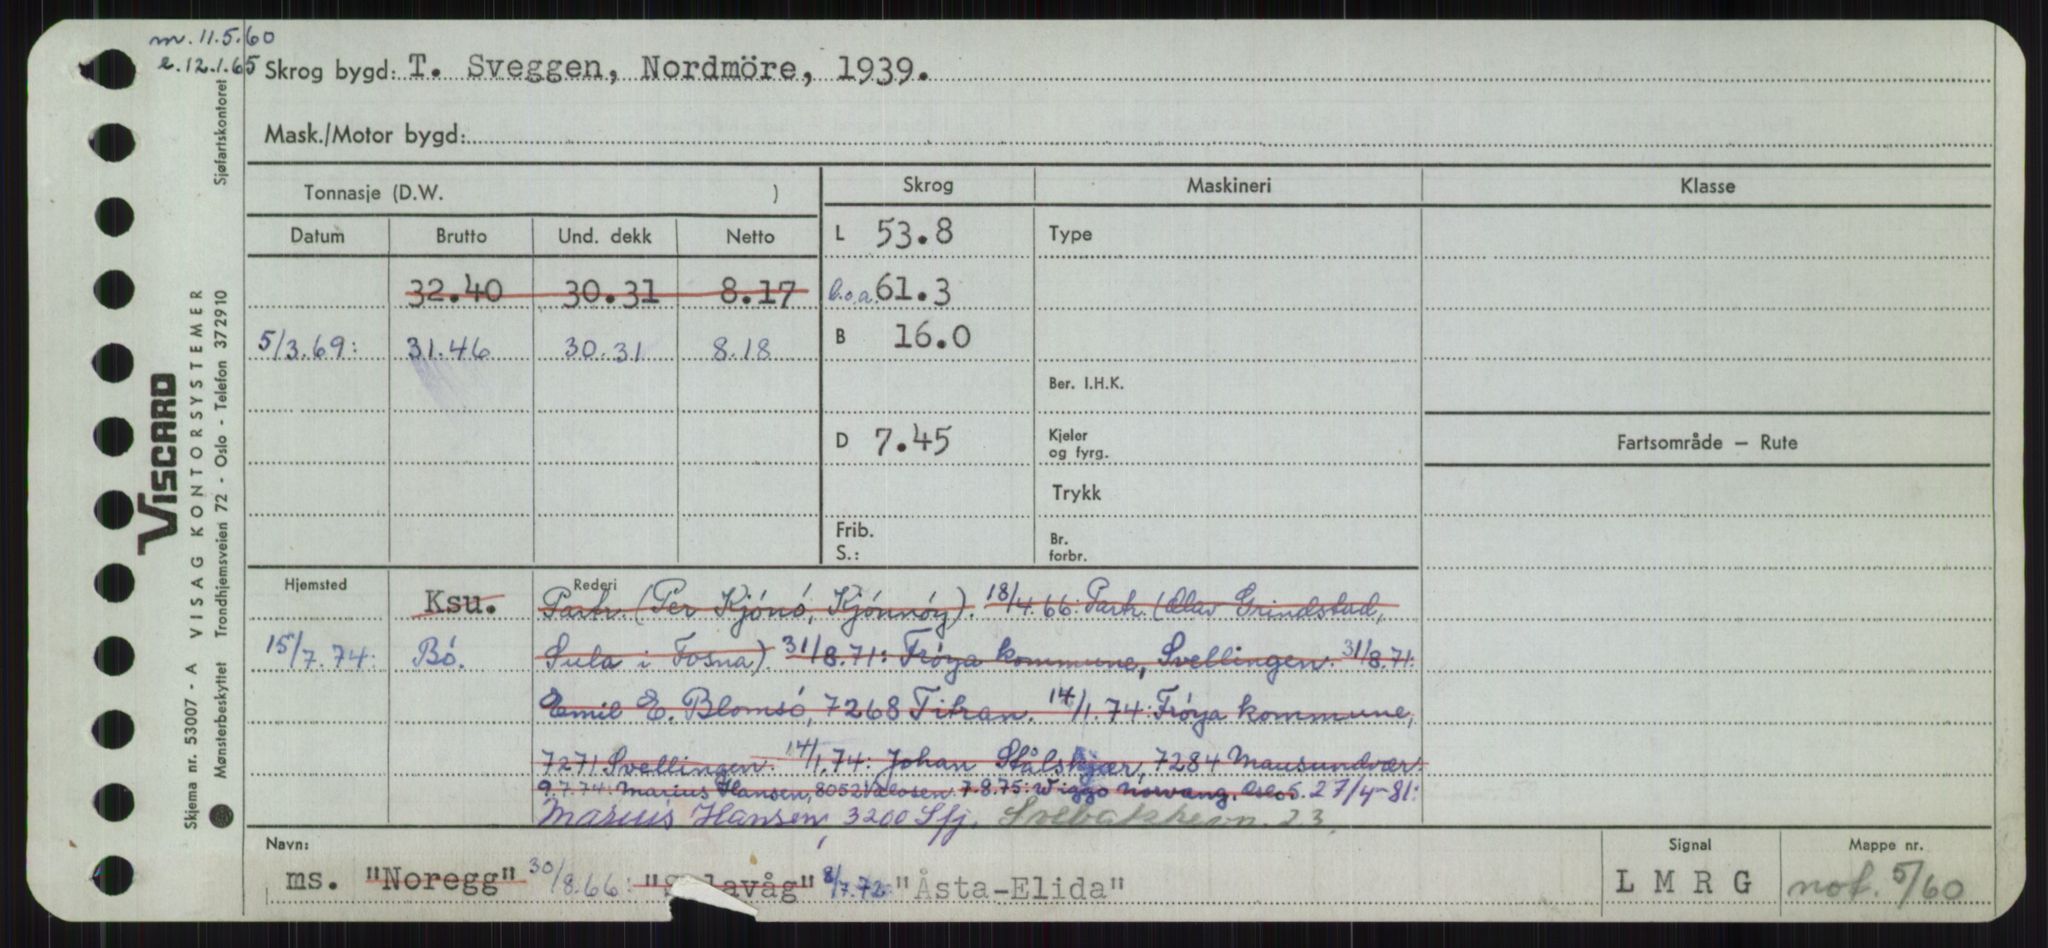 m. 11.5.60
e. 12.1.65
Skrog bygd: T. Sveggen, Nordmöre, 1939.
Mask./Motor bygd:
Tonnasje (D.W. )
Skrog
Maskineri
Klasse
Datum Brutto Und. dekk Netto
L 53.8
Type
32.40 30.31 8.17
l.o.a. 61.3
5/3.69: 31.46 30.31 8.18
B 16.0
Ber. I.H.K.
D 7.45
Kjeler
og fyrg.
Fartsområde – Rute
Trykk
Frib.
S.:
Br.
forbr.
Hjemsted
Rederi
Ksu. Partr. (Per Kjónó, Kjónnóy). 18/4.66: Partr. (Olav Grindstad,
15/7.74: Bó. Sula i Fosna) 31/8.71: Fróya kommune, Svellingen. 31/8.71:
Emil E. Blomsó, 7268 Titran. 14/1.74: Fróya kommune,
7271 Svellingen. 14/1.74: Johan Stålskjær, 7284 Mausundvær.
9.7.74: Marius Hansen, 8052 Valosen. 7.8.75: Wiggo Norvang, Oslo 5. 27/4-81:
Marius Hansen, 3200 Sfj. 23
Navn:
Signal
Mappe nr.
ms. "Noregg" 30/8.66: "S lavåg" 8/7.72: "Åsta-Elida"
L M R G
not. 5/60
Skjema nr. 53007 - A VISAG KONTORSYSTEMER Sjøfartskontoret
Mønsterbeskyttet Trondhjemsveien 72 - Oslo - Telefon 372910
VISCARD